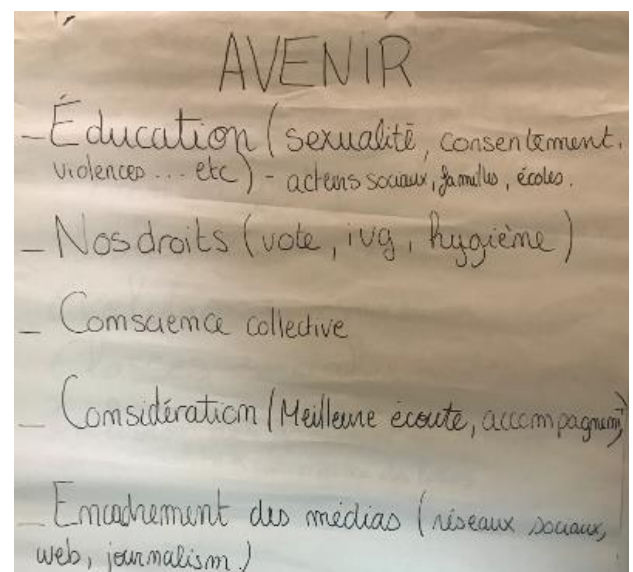 AVENIR
_ Éducation (sexualité, consentement,
violences ... etc) - acteurs sociaux, familles, écoles.
_ Nos droits (vote, ivg, hygiène)
_ Comscience collective
_ Considération (Meilleure écoute, accompagnemt)
_ Encadrement des médias (réseaux sociaux,
web, journalism.)